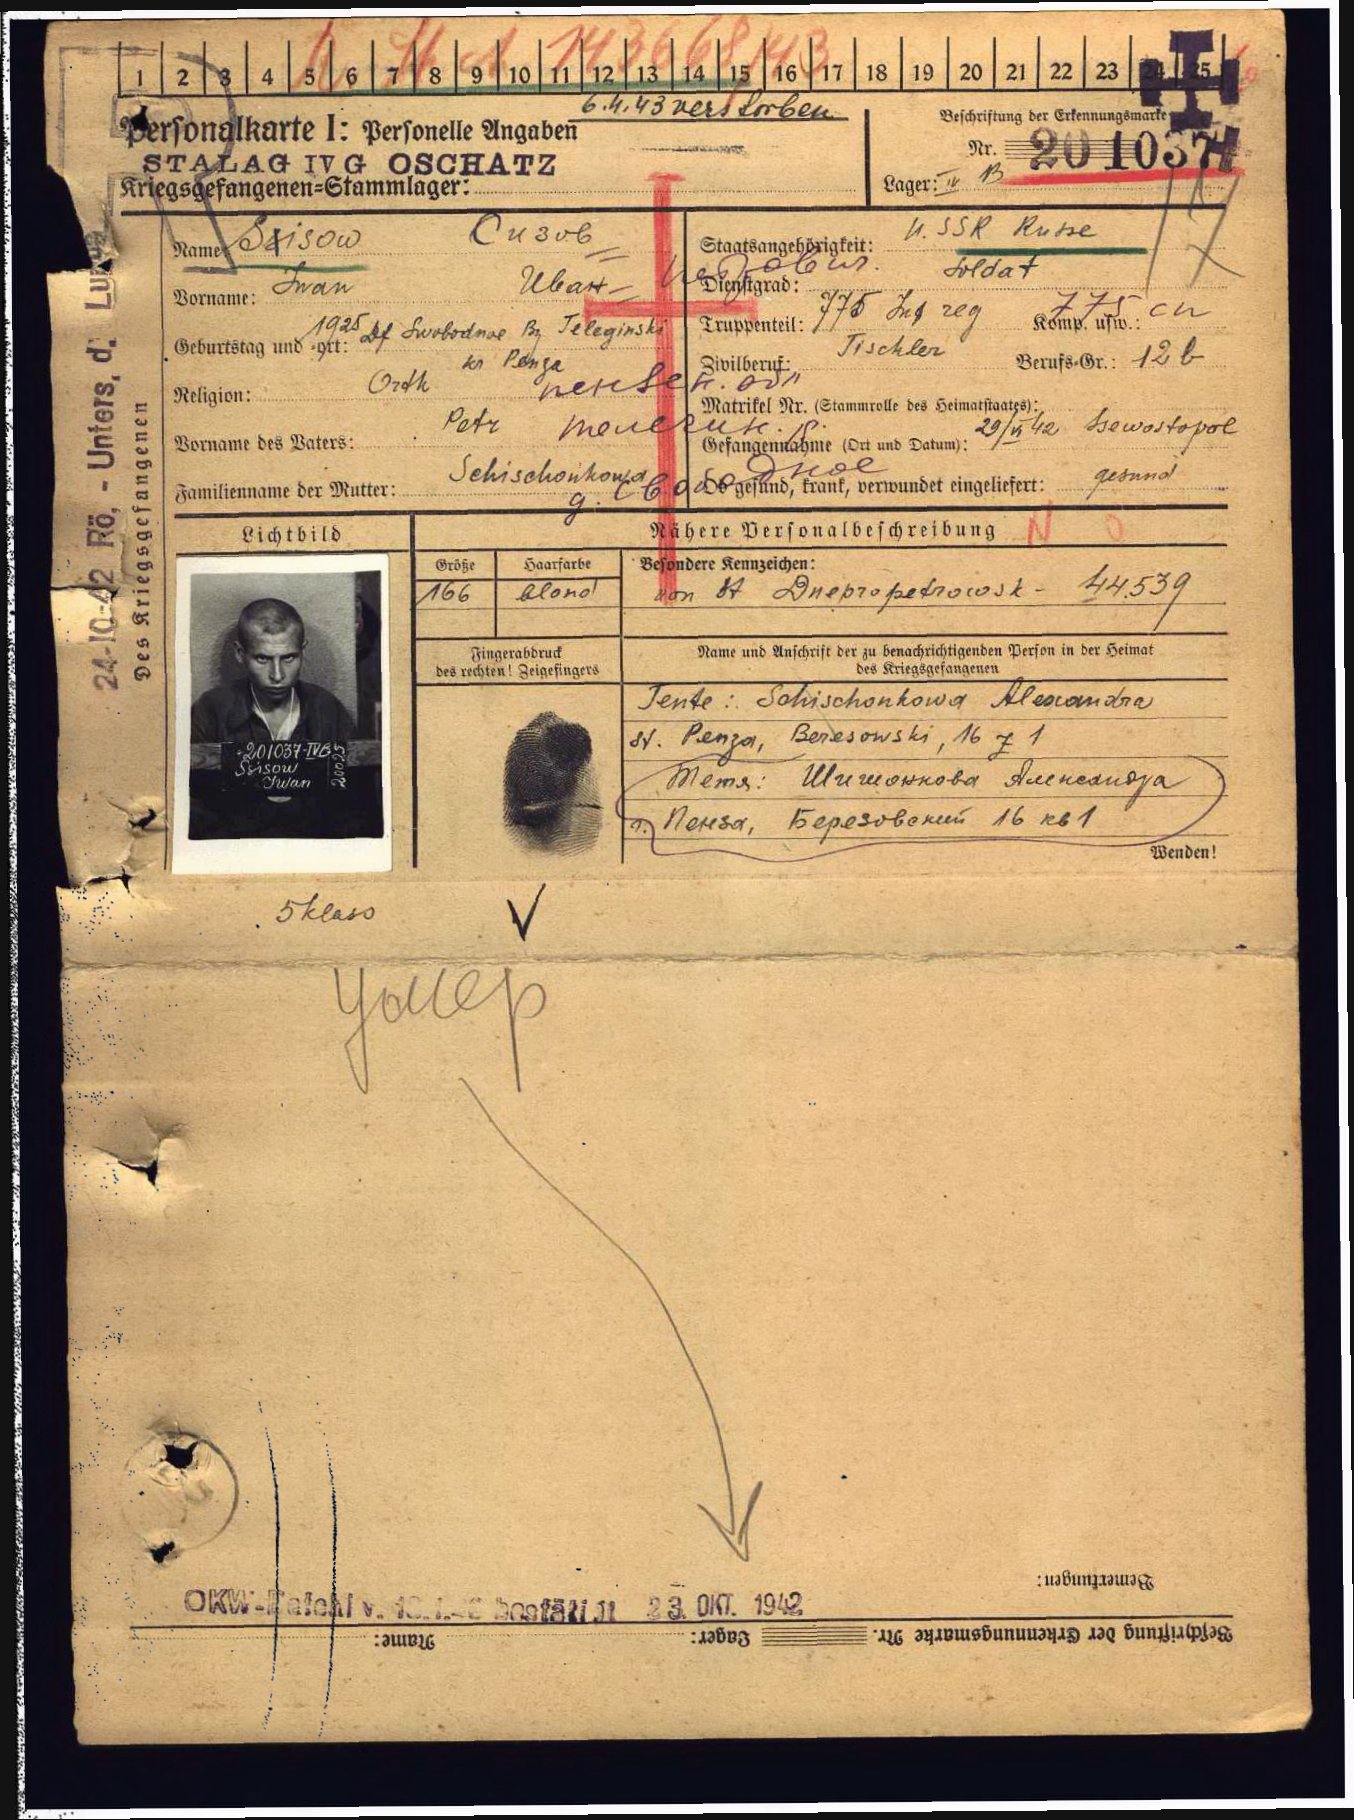 1 2 3 4 5 6 7 8 9 10 11 12 13 14 15 16 17 18 19 20 21 22 23 24 25
6.4.43 verstorben
Personalkarte I: Personelle Angaben
Beschriftung der Erkennungsmarke
STALAG IV G OSCHATZ
Nr. 201037
Kriegsgefangenen-Stammlager:
Lager: IV B
Name: Ssisow Сизов
Staatsangehörigkeit: U.SSR Russe
Vorname: Iwan Иван
Dienstgrad: Soldat
Geburtstag und -ort: 1925 Df Swobodnoe Bz Teleginski
kr Penza
Truppenteil: 775 Inf reg Komp. usw.: 775 сп
Zivilberuf: Tischler Berufs-Gr.: 12 b
Religion: Orth
пензен. обл
Matrikel Nr. (Stammrolle des Heimatstaates):
Vorname des Vaters: Petr
телегин. р.
Gefangennahme (Ort und Datum): 29/VI 42 Ssewastopol
Familienname der Mutter: Schischonkowa
д. Свободное
Ob gesund, krank, verwundet eingeliefert: gesund
24-10-42 Rö.-Unters. d.
Des Kriegsgefangenen
Lichtbild
Nähere Personalbeschreibung
N O
Größe
Haarfarbe
Besondere Kennzeichen:
166
blond
von St Dnepropetrowsk - 44.539
Fingerabdruck
des rechten! Zeigefingers
Name und Anschrift der zu benachrichtigenden Person in der Heimat
des Kriegsgefangenen
Tente: Schischonkowa Alexandra
st. Penza, Beresowski, 16 z 1
Тетя: Шишонкова Александра
г. Пенза, Березовский 16 кв 1
Wenden!
201037-IVB
Ssisow
Iwan
5 klass
Умер
Bemerkungen:
OKW-Befehl v. bestätigt 23. OKT. 1942
Beschriftung der Erkennungsmarke Nr. Lager: Name: